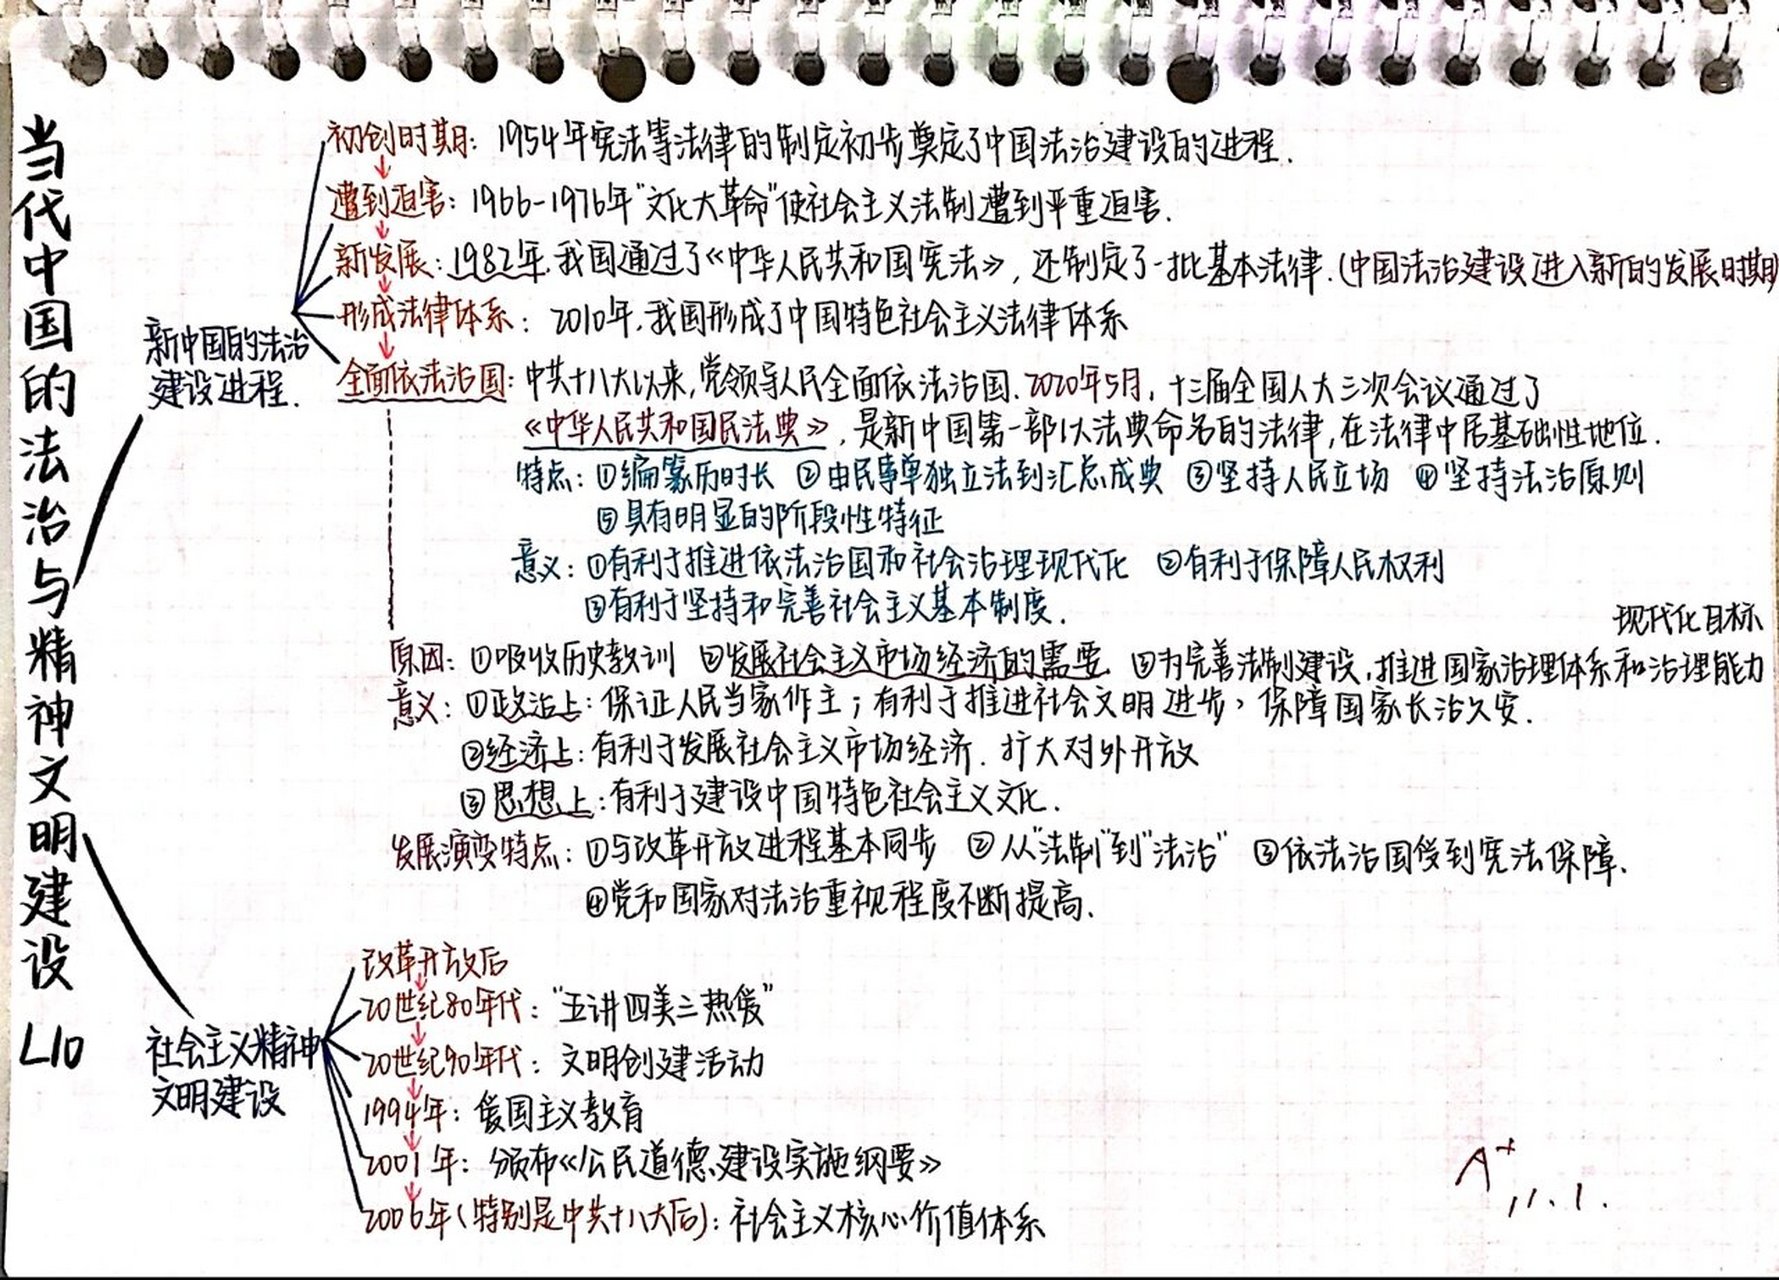 当代中国的法治与精神文明建设 L10
新中国的法治
建设进程.
初创时期：1954年宪法等法律的制定初步奠定了中国法治建设的进程.
遭到迫害：1966-1976年“文化大革命”使社会主义法制遭到严重迫害.
新发展：1982年,我国通过了《中华人民共和国宪法》,还制定了一批基本法律.(中国法治建设进入新的发展时期)
形成法律体系：2010年,我国形成了中国特色社会主义法律体系
全面依法治国：中共十八大以来,党领导人民全面依法治国.2020年5月,十三届全国人大三次会议通过了
《中华人民共和国民法典》,是新中国第一部以法典命名的法律,在法律中居基础性地位.
特点：①编纂历时长 ②由民事单独立法到汇总成典 ③坚持人民立场 ④坚持法治原则
⑤具有明显的阶段性特征
意义：①有利于推进依法治国和社会治理现代化 ②有利于保障人民权利
③有利于坚持和完善社会主义基本制度.
现代化目标
原因：①吸收历史教训 ②发展社会主义市场经济的需要 ③为完善法制建设,推进国家治理体系和治理能力
意义：①政治上：保证人民当家作主；有利于推进社会文明进步,保障国家长治久安.
②经济上：有利于发展社会主义市场经济.扩大对外开放
③思想上：有利于建设中国特色社会主义文化.
发展演变特点：①与改革开放进程基本同步 ②从“法制”到“法治” ③依法治国受到宪法保障.
④党和国家对法治重视程度不断提高.
社会主义精神
文明建设
改革开放后
20世纪80年代：“五讲四美三热爱”
20世纪90年代：文明创建活动
1994年：爱国主义教育
2001年：颁布《公民道德建设实施纲要》
2006年(特别是中共十八大后)：社会主义核心价值体系
A+
11.1.